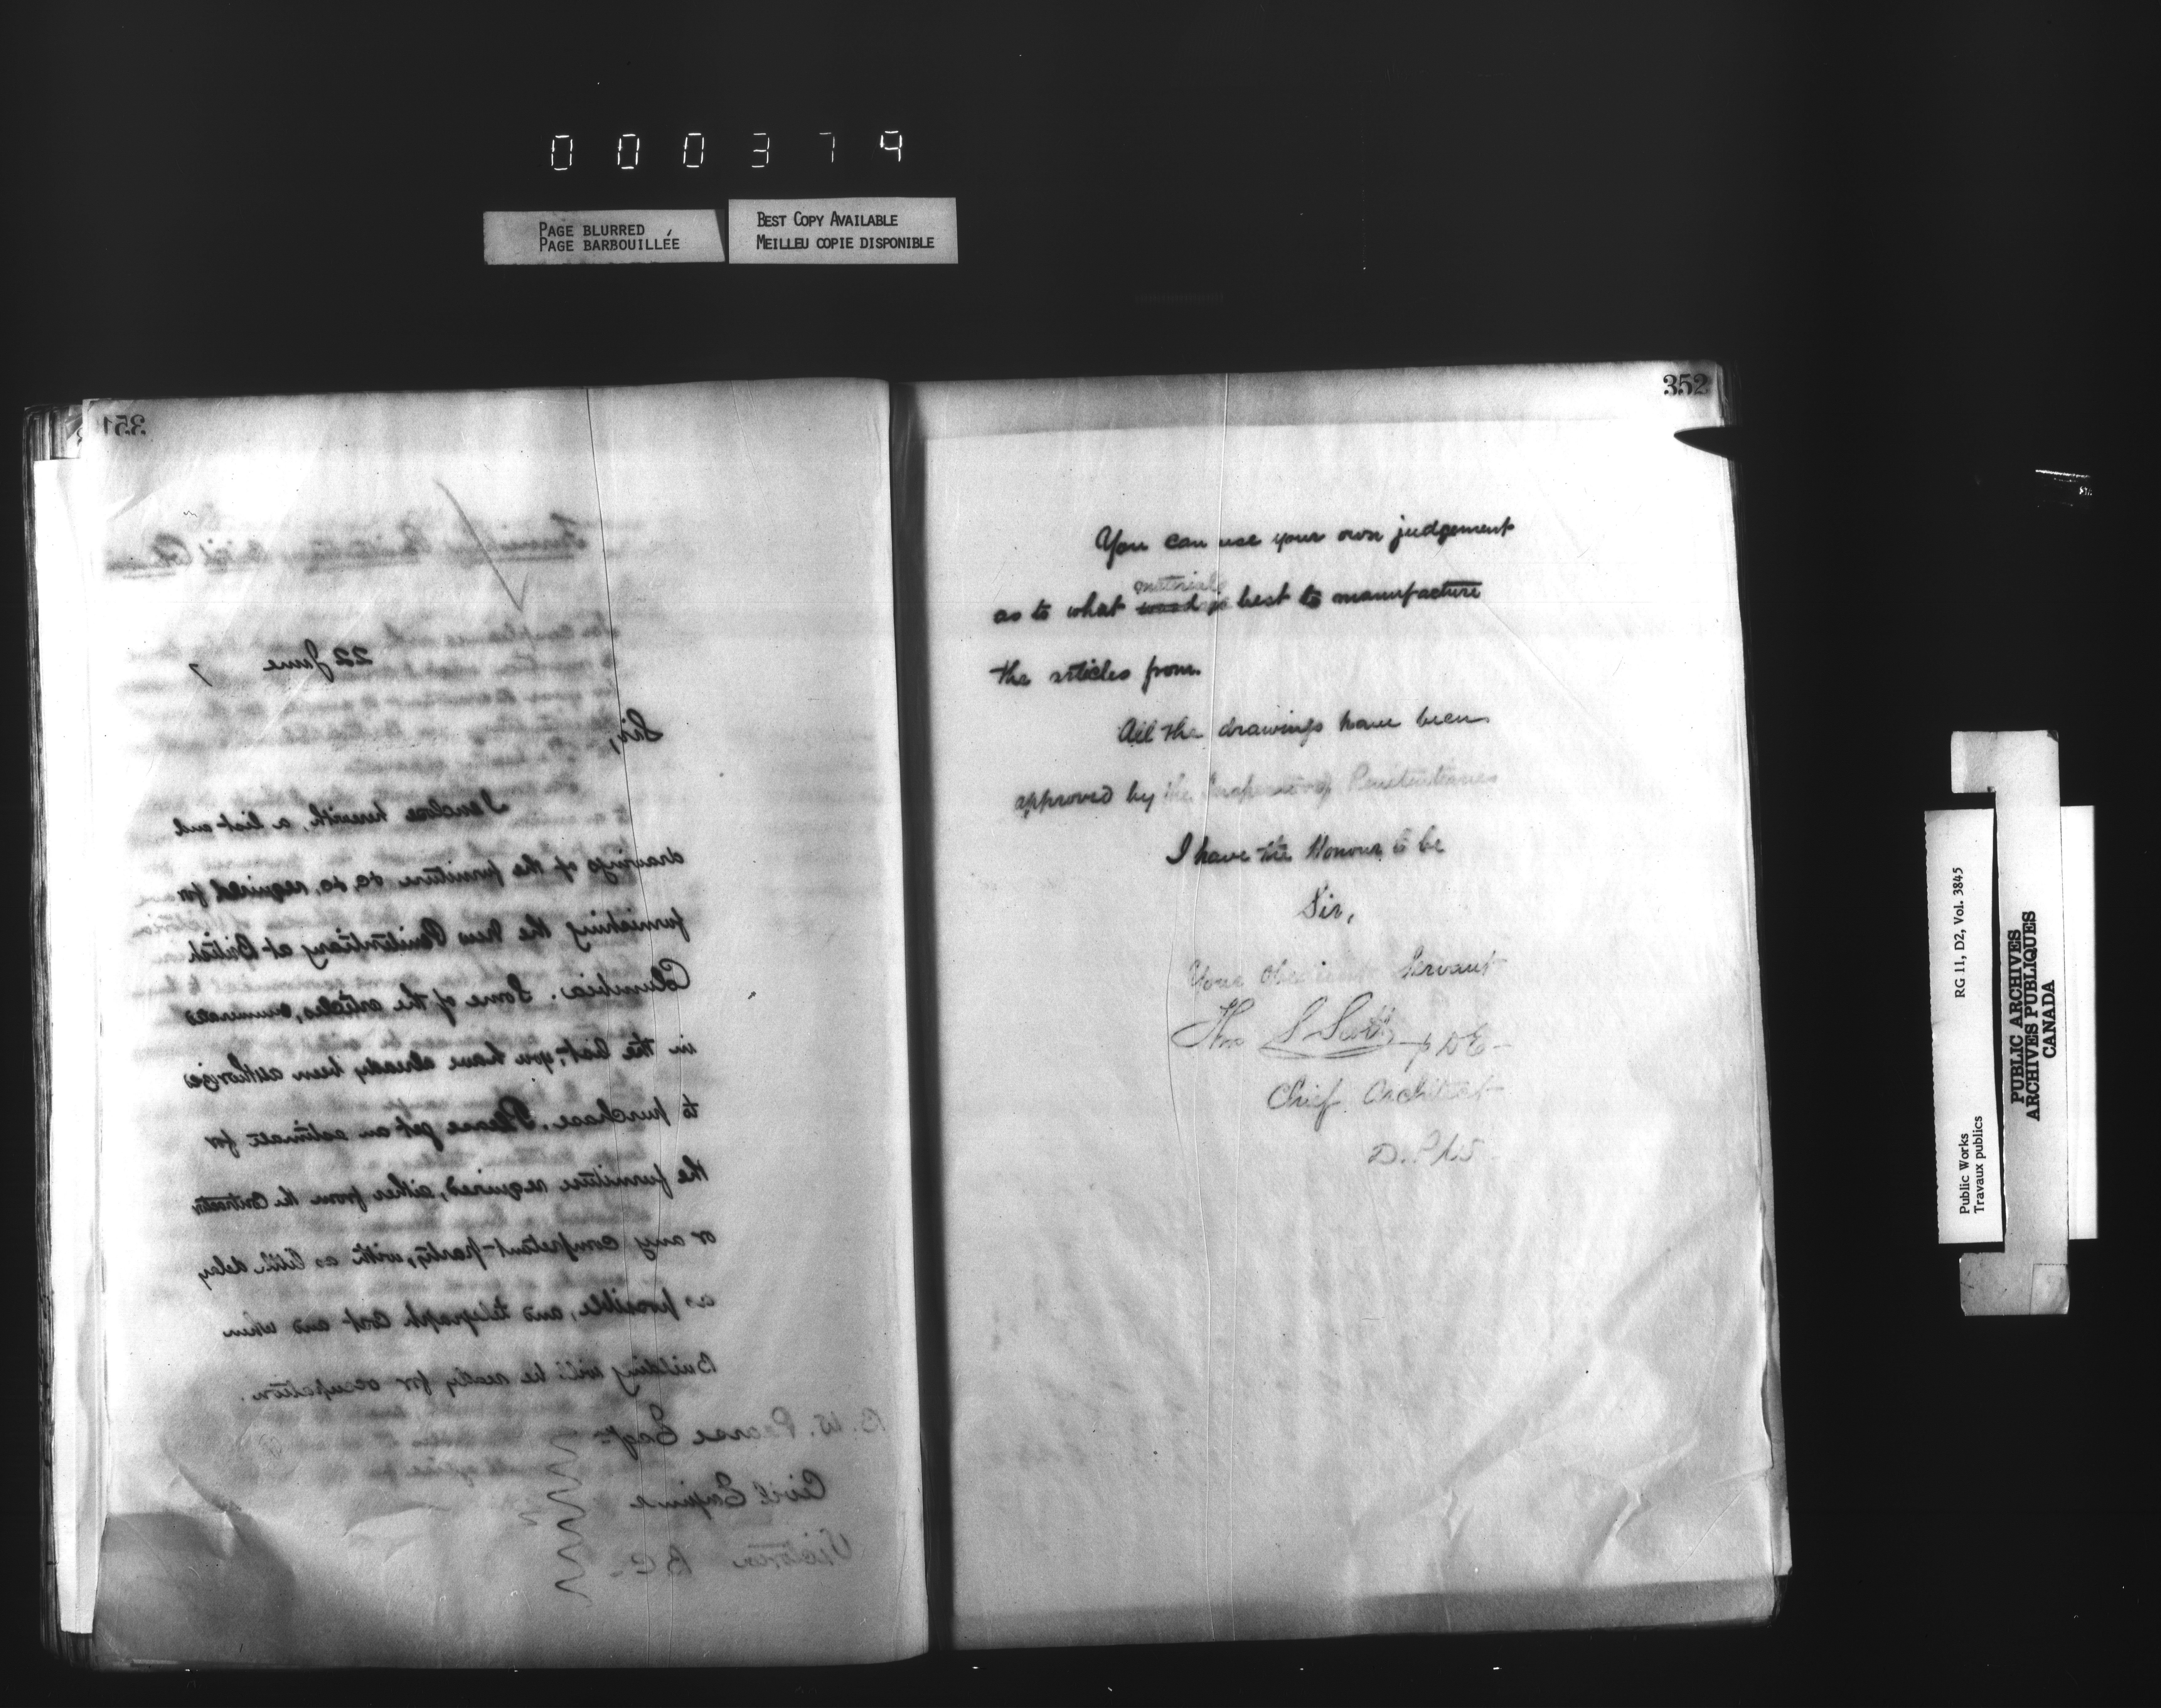 000379
PAGE BLURRED
PAGE BARBOUILLÉE
BEST COPY AVAILABLE
MEILLEU COPIE DISPONIBLE
351
22 June 7
Sir,
I enclose herewith, a list and
drawings of the furniture &c, &c, required for
furnishing the New Penitentiary at British
Columbia. Some of the articles, enumerated
in the list, you have already been authorized
to purchase. Please get an estimate for
the furniture required, either from the Contractor
or any competent party, with as little delay
as possible, and telegraph cost and when
Building will be ready for occupation.
B. W. Pearse Esqr
Civil Engineer
Victoria B C.
352
You can use your own judgement
materials
as to what wood is best to manufacture
the articles from.
All the drawings have been
approved by the Inspector of Penitentiaries
I have the Honour to be
Sir,
Your Obedient Servant
Thos S Scott
Chief Architect
D. P. W.
Public Works
Travaux publics
RG 11, D2, Vol. 3845
PUBLIC ARCHIVES
ARCHIVES PUBLIQUES
CANADA